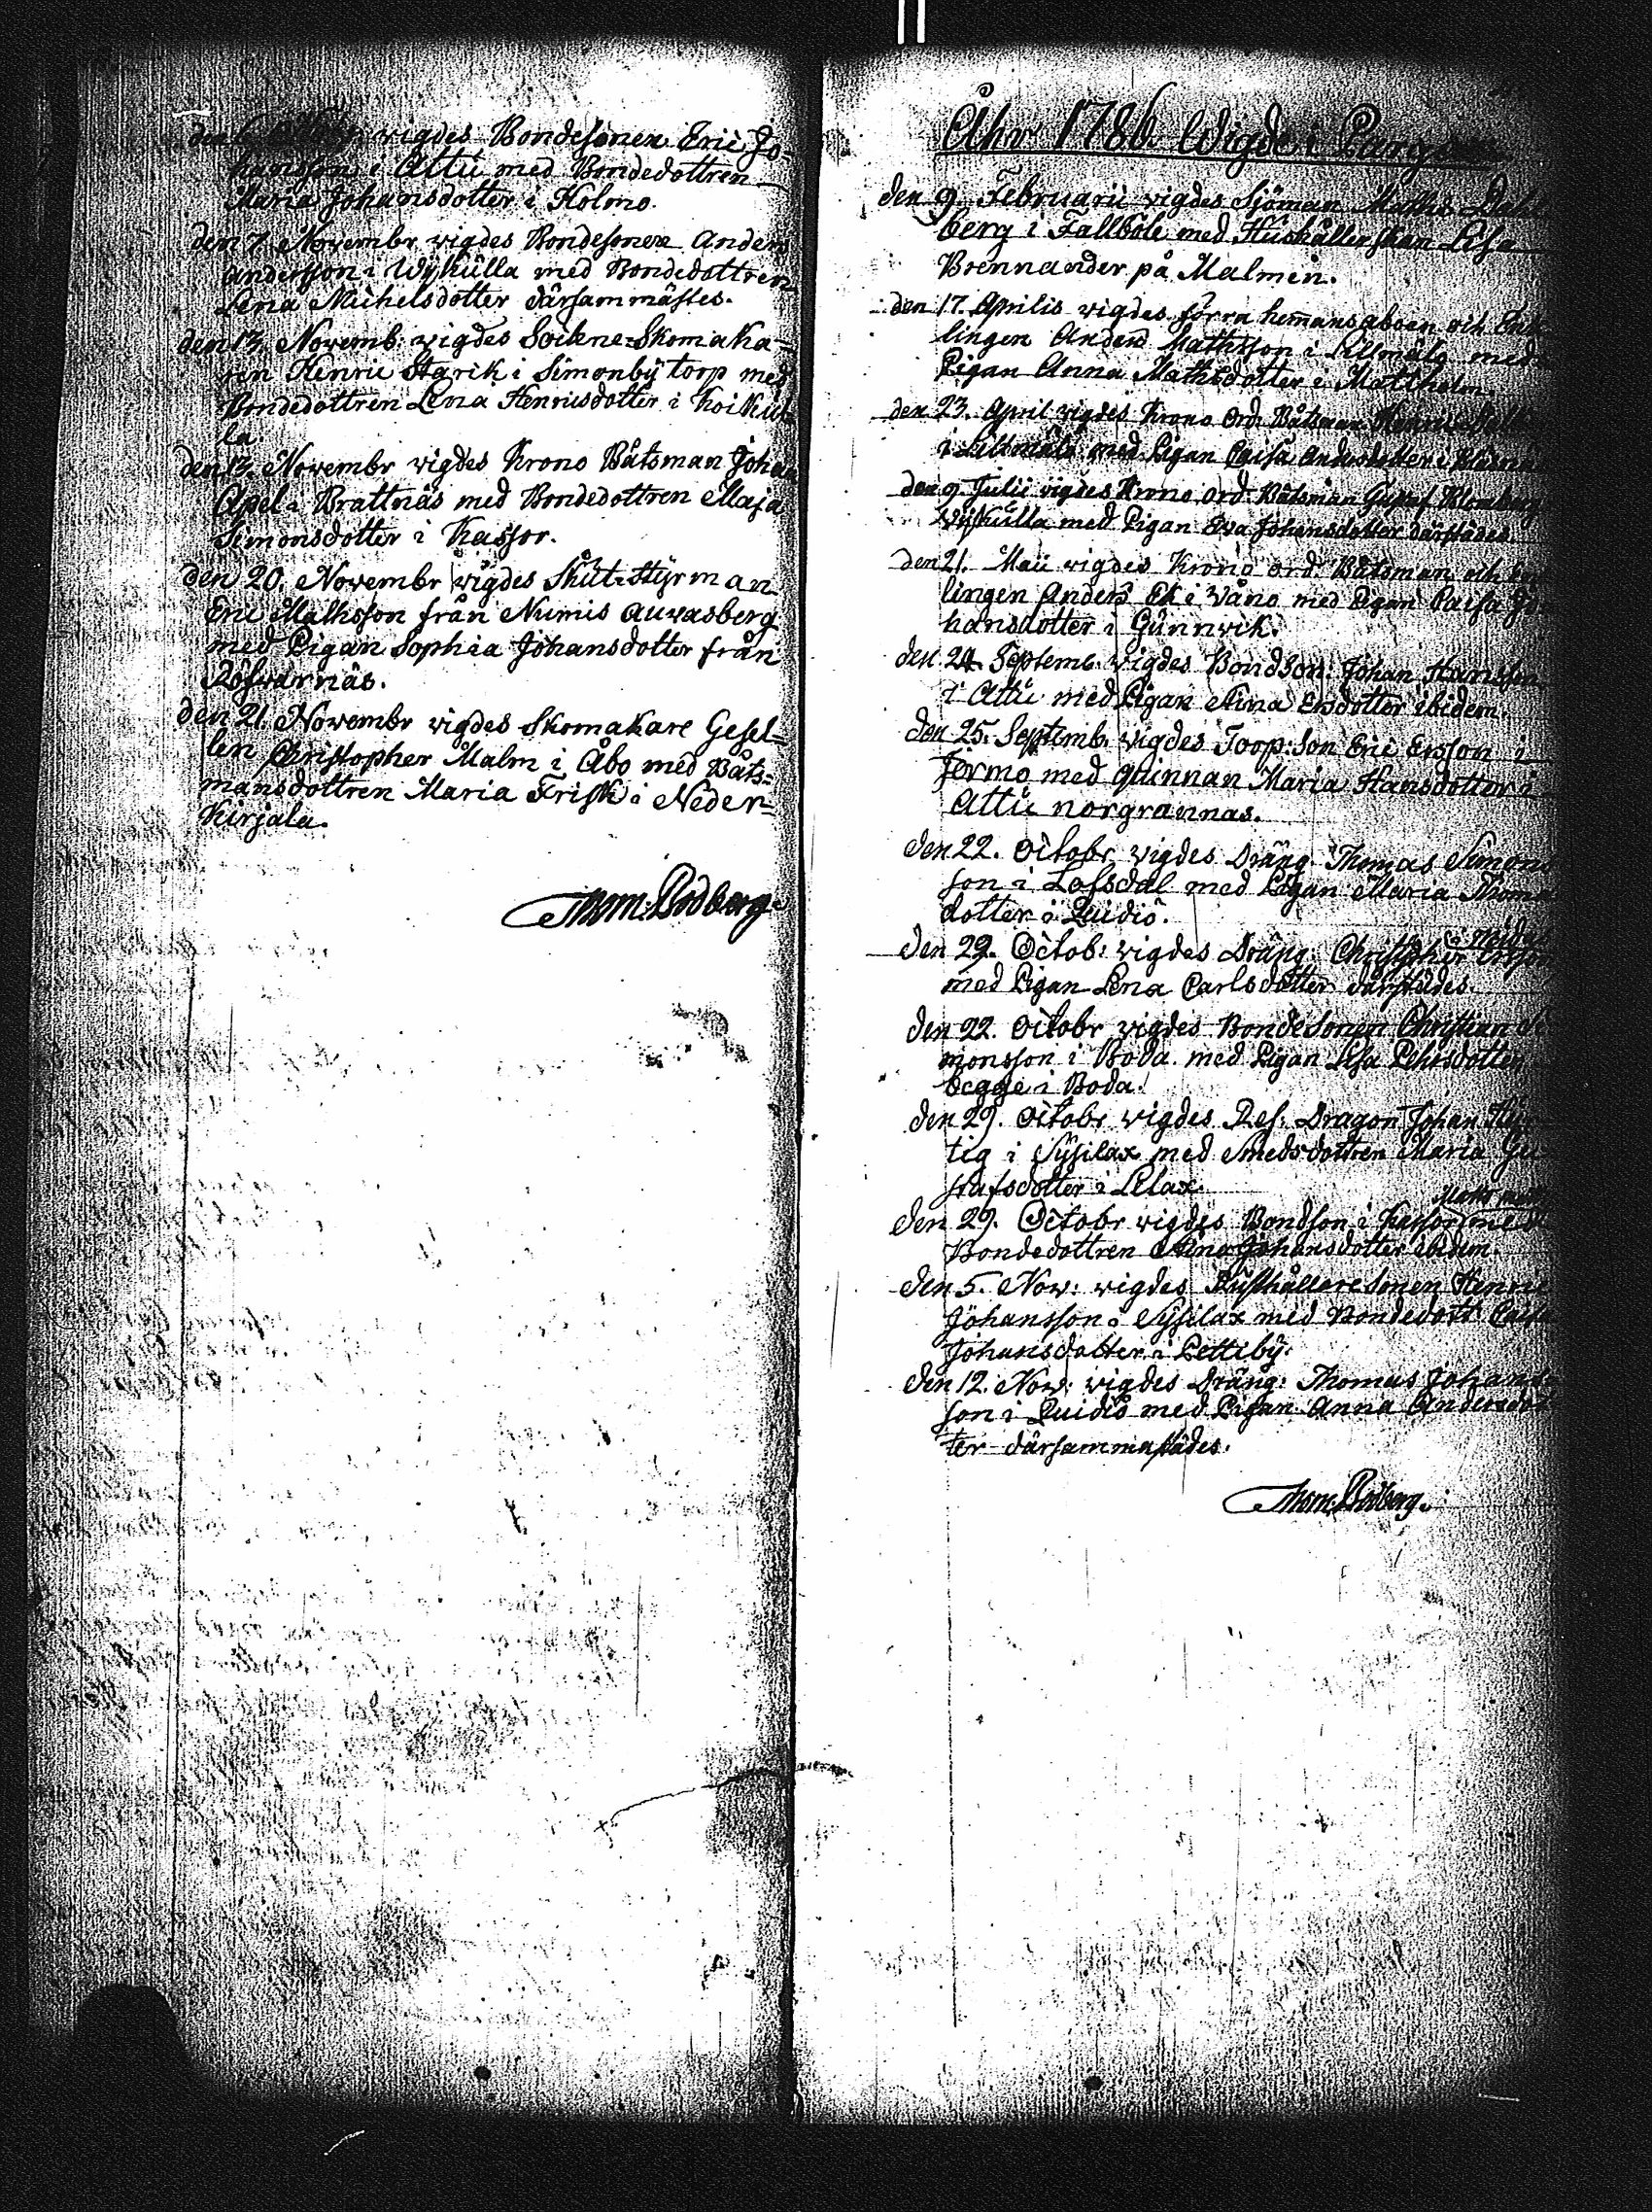 den 6. vigdes Bondesonen Eric Jo-
hansson i Attu med Bondedottren
Maria Johansdotter i Holmo.
den 7. Novembr vigdes Bondesonen Anders
Andersson i Wykulla med Bondedottren
Lena Michelsdotter därsammastes.
den 13. Novemb: vigdes Sockne-Skomaka-
ren Henric Starck i Simonby torp med
Bondedottren Lena Henricsdotter i Koikul-
la
den 13. Novembr vigdes Krono Båtsman Johan
Apel i Brattnäs med Bondedottren Maja
Simonsdotter i Kassor.
den 20. Novembr vigdes Skut-Styrman
Eric Mathsson från Numis Auvasberg
med Pigan Sophia Johansdotter från
Röfvarnäs.
den 21. Novembr vigdes Skomakare Gesel-
len Christopher Malm i Åbo med Båts-
mansdottren Maria Frisk i Neder-
Kirjala.
Thom: Rodberg
Åhr 1786. Wigde i
den 9. Februarii vigdes Sjöman Maths Dahl
berg i Fallböle med Hushållerskan Lisa
Brennander på Malmen.
den 17. Aprilis vigdes förra hemansåboen och Enk
lingen Anders Mathsson i Lillmälö med
Pigan Anna Mathsdotter i Mattholm
den 23. April vigdes Krono Ord: Båtsman Henric
i Lillmälö med Pigan Caisa Andersdotter i
den 9. Julii vigdes Krono ord: Båtsman Gustaf Blomberg
Wijkulla med Pigan Eva Johansdotter därstädes.
den 21. Maii vigdes Krono ord: Båtsman och En
lingen Anders Ek i Våno med Pigan Caisa Jo
hansdotter i Gunnvik.
den 24. Septemb. vigdes Bondson: Johan Hansson
i Attu med Pigan Stina Ersdotter ibidem.
den 25. Septemb. vigdes Toop: son Eric Ersson i
Jermo med quinnan Maria Hansdotter i
Attu norgrannas.
den 22. Octobr vigdes Dräng Thomas Simons
son i Lofsdal med Pigan Maria Thoma
dotter i Quidiö.
den 29. Octob: vigdes Dräng: Christopher Ersson
med Pigan Lena Carlsdotter därstädes.
den 22. Octobr vigdes Bondesonen Christian Si
monsson i Boda med Pigan Lisa Pehrsdotter
begge i Boda.
den 29. Octobr vigdes Res. Dragon Johan
tig i Sysilax med Smedsdottren Maria Gu
stafsdotter i Lelax.
den 29. Octobr vigdes Bondson i Kassor med
Bondedottren Stina Johansdotter ibidem.
den 5. Nov: vigdes Rusthållaresonen Henric
Johansson i Sysilax med Bondedott: Caisa
Johansdotter i Pettiby.
den 12. Nov: vigdes Dräng: Thomas Johans
son i Quidiö med Pigan Anna Andersdot
ter därsammastädes.
Thom: Rodberg.